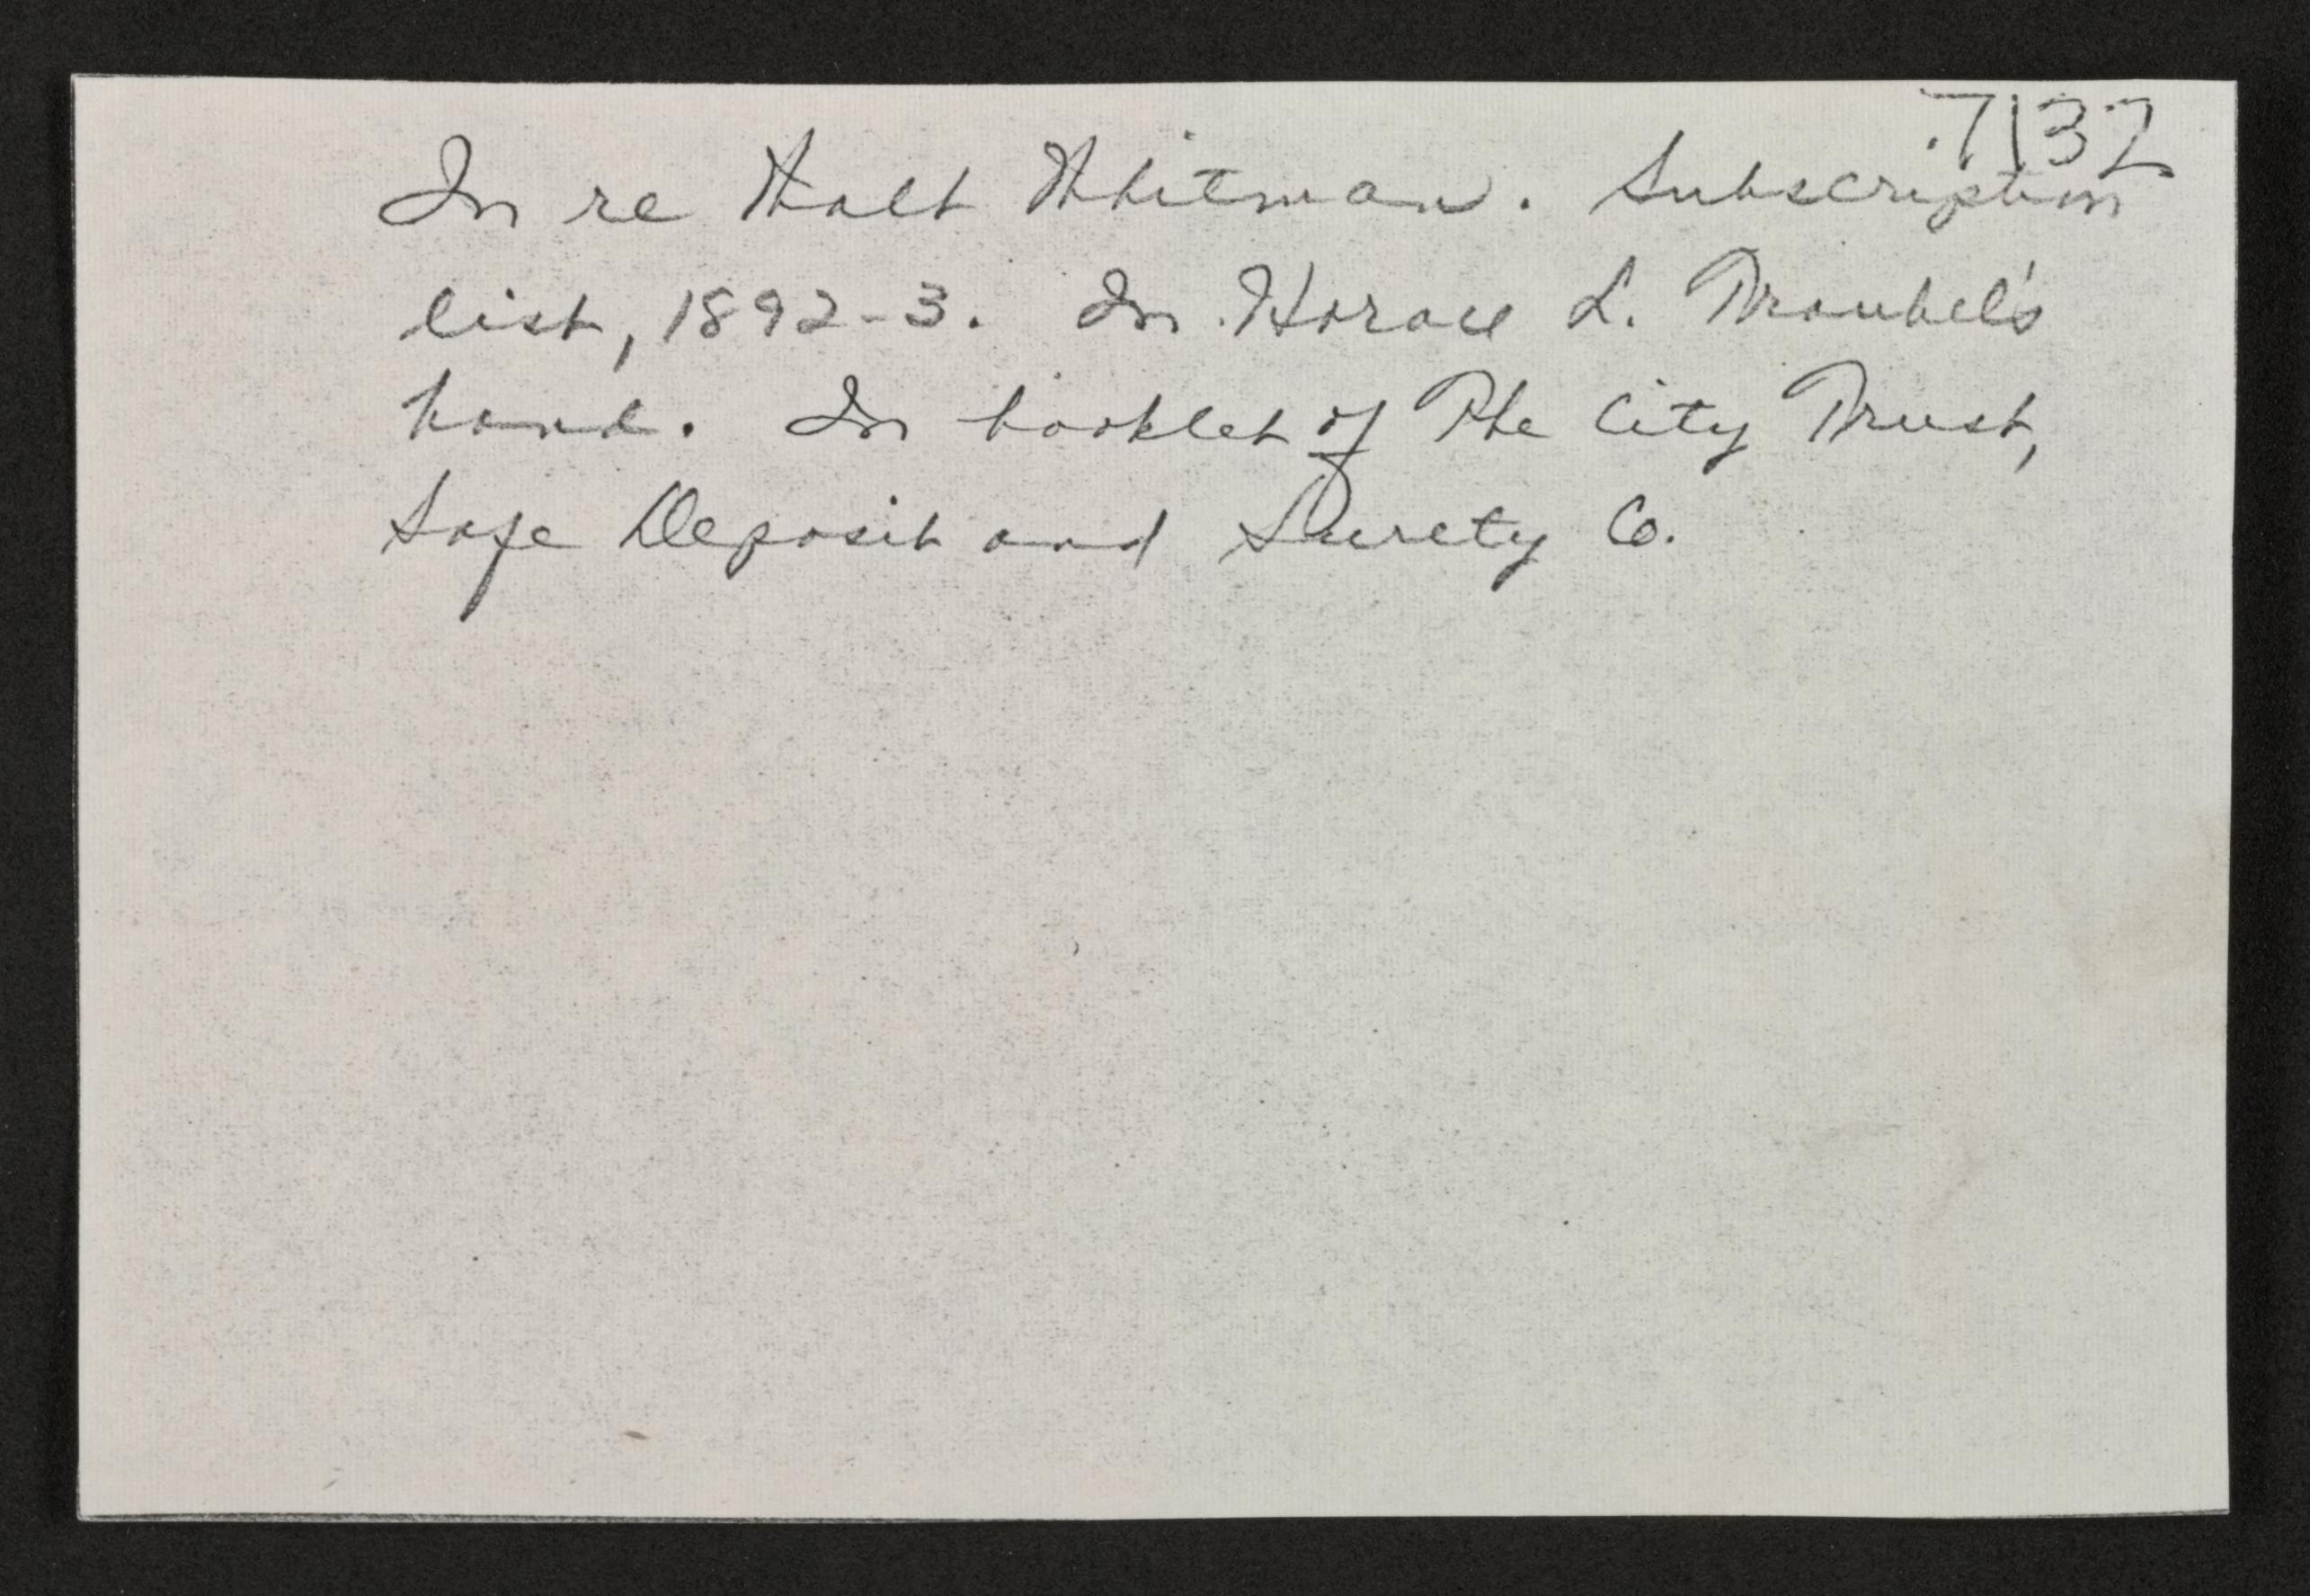 7132
In re Walt Whitman. Subscription
list, 1892-3. In Horace L. Traubel's
hand. In booklet of The City Trust,
Safe Deposit and Surety Co.